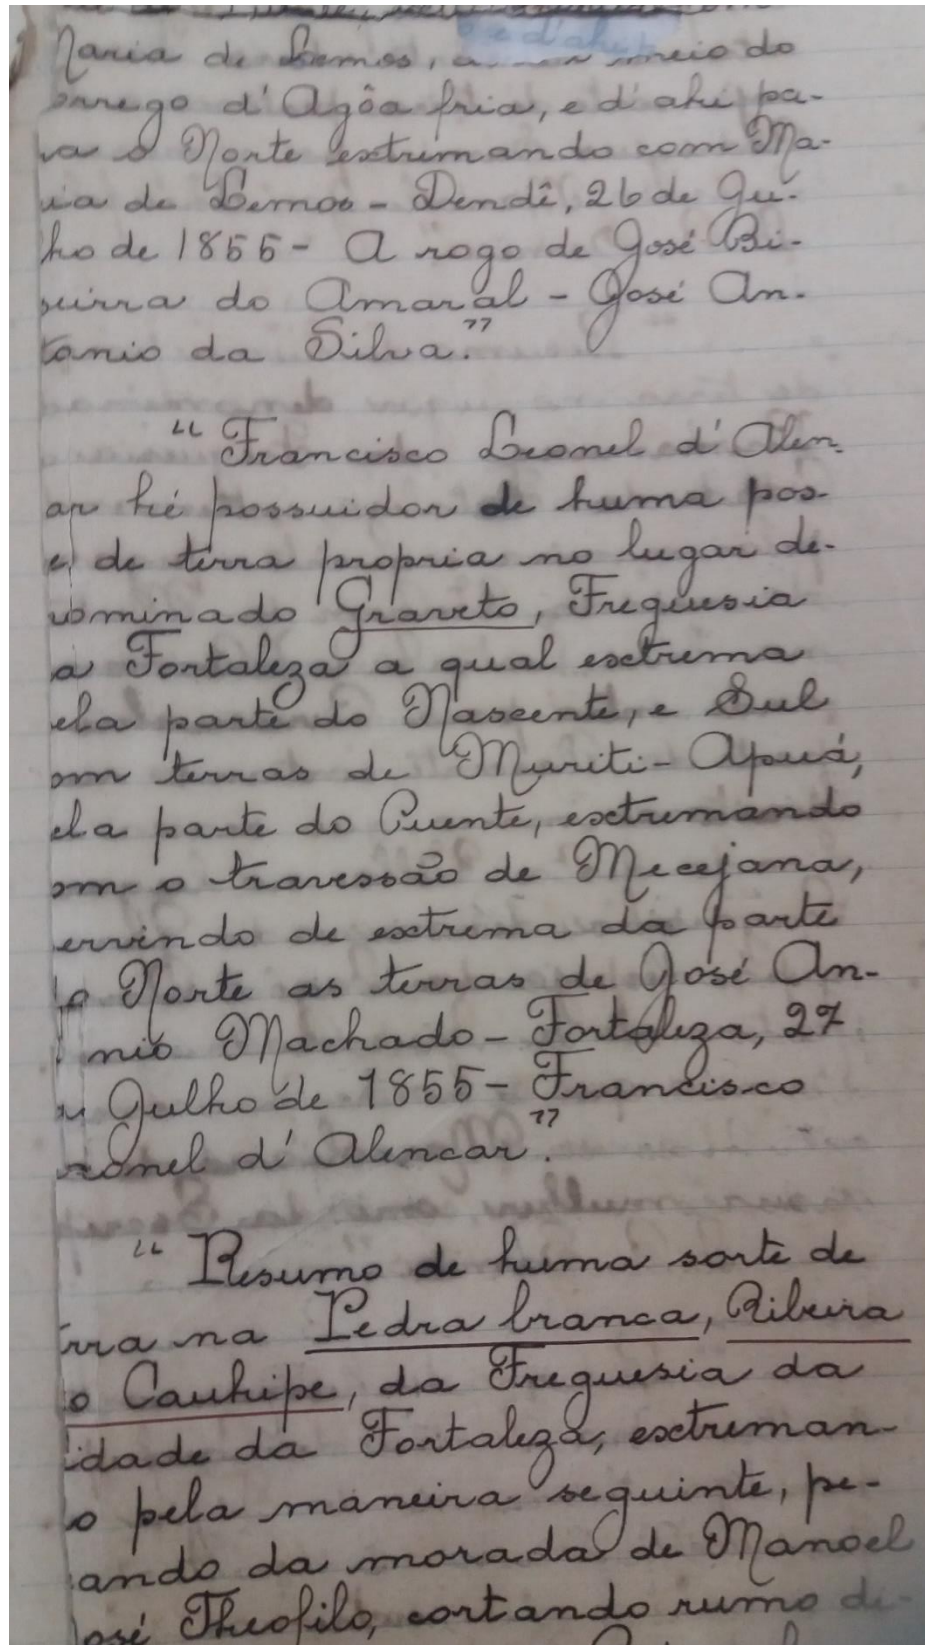 Maria de Lemos, meio do
orrego d'Agôa fria, e d'ahi pa-
ra o Norte extremando com Ma-
ria de Lemos - Dendê, 26 de Ju-
lho de 1855 - A rogo de José Bi-
zerra do Amaral - José An-
tonio da Silva."
"Francisco Leonel d'Alen-
ar hé possuidor de huma pos-
e de terra propria no lugar de-
nominado Graveto, Freguesia
a Fortaleza a qual extrema
ela parte do Nascente, e Sul
om terras de Muriti-Apuá,
ela parte do Puente, extremando
om o travessão de Mecejana,
ervindo de extrema da parte
o Norte as terras de José An-
nio Machado - Fortaleza, 27
Julho de 1855 - Francisco
eonel d'Alencar."
"Resumo de huma sorte de
rra na Pedra branca, Ribeira
o Cauhipe, da Freguesia da
idade da Fortaleza, extreman-
o pela maneira seguinte, pe-
ando da morada de Manoel
José Theofilo, cortando rumo di-